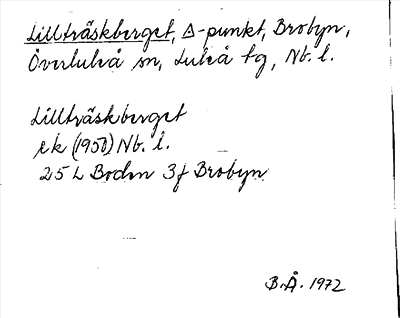 Lillträskberget, Δ-punkt, Brobyn,
Överluleå sn, Luleå tg, Nb. l.
Lillträskberget
ek (1950) Nb. l.
25 L Boden 3f Brobyn
B.Å. 1972